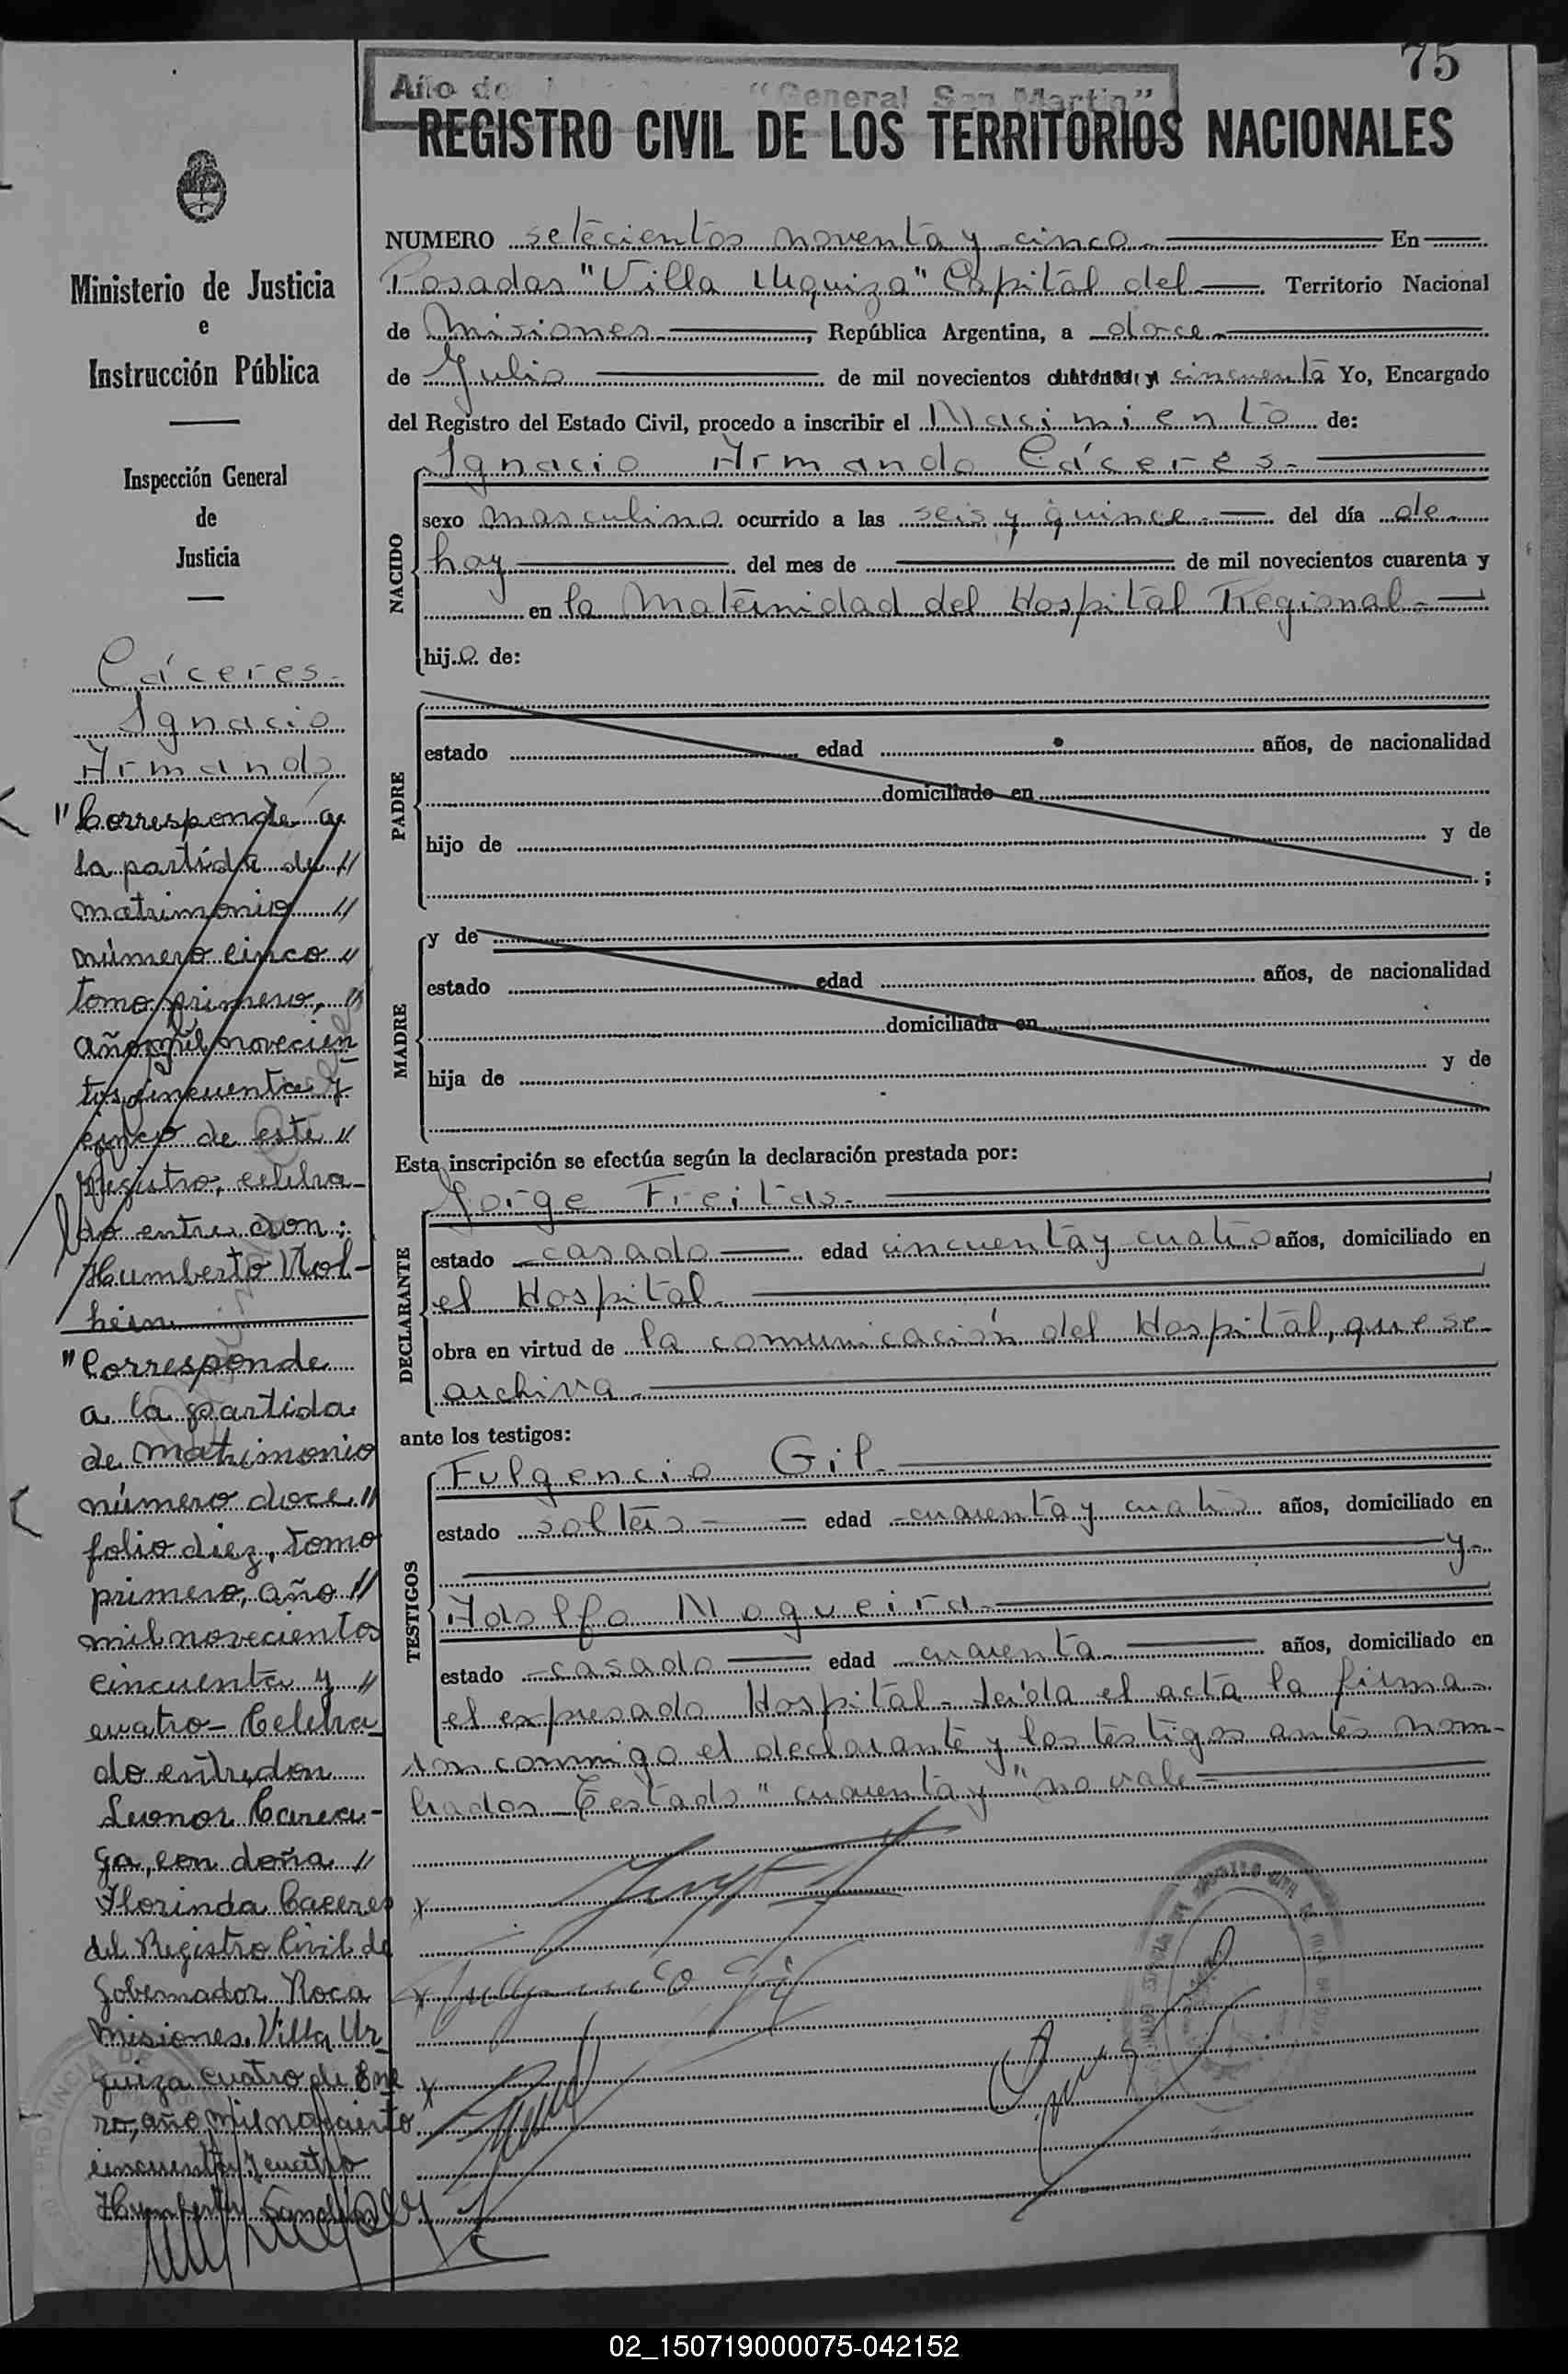 75
Año de "General San Martin"
REGISTRO CIVIL DE LOS TERRITORIOS NACIONALES
NUMERO setecientos noventa y cinco.— En
Posadas "Villa Urquiza" Capital del — Territorio Nacional
de Misiones — , República Argentina, a doce.—
de Julio — de mil novecientos cuarenta y cincuenta Yo, Encargado
del Registro del Estado Civil, procedo a inscribir el Nacimiento de:
Ignacio Armando Cáceres.—
NACIDO
sexo masculino ocurrido a las seis y quince.— del día de
hoy — del mes de — de mil novecientos cuarenta y
en la Maternidad del Hospital Regional.—
hijo de:
PADRE
estado edad años, de nacionalidad
domiciliado en
hijo de y de
;
MADRE
y de
estado edad años, de nacionalidad
domiciliada en
hija de y de
Esta inscripción se efectúa según la declaración prestada por:
Jorge Freitas.—
DECLARANTE
estado casado — edad cincuenta y cuatro años, domiciliado en
el Hospital.—
obra en virtud de la comunicación del Hospital, que se
archiva.—
ante los testigos:
Fulgencio Gil.—
TESTIGOS
estado soltero — edad cuarenta y cuatro años, domiciliado en
— y
Adolfo Nogueira.—
estado casado — edad cuarenta.— años, domiciliado en
el expresado Hospital.- Leída el acta la firma-
ron conmigo el declarante y los testigos antes nom-
brados.- Testado "cuarenta y" no vale.—
Fulgencio Gil
Ministerio de Justicia
e
Instrucción Pública
Inspección General
de
Justicia
Cáceres.
Ignacio
Armando
"Corresponde a
la partida de "
matrimonio "
número cinco "
tomo primero, "
año mil novecien
tos cincuenta y
cinco de este "
Registro, celebra-
do entre don:
Humberto
"Corresponde
a la partida
de matrimonio
número doce "
folio diez, tomo
primero, año "
mil novecientos
cincuenta y "
cuatro- Celebra-
do entre don
Leonor
con doña "
Florinda Caceres
del Registro Civil de
Gobernador Roca
Misiones. Villa Ur
quiza cuatro de Ene
ro, año mil noveciento
cincuenta y cuatro
Humberto
02_150719000075-042152